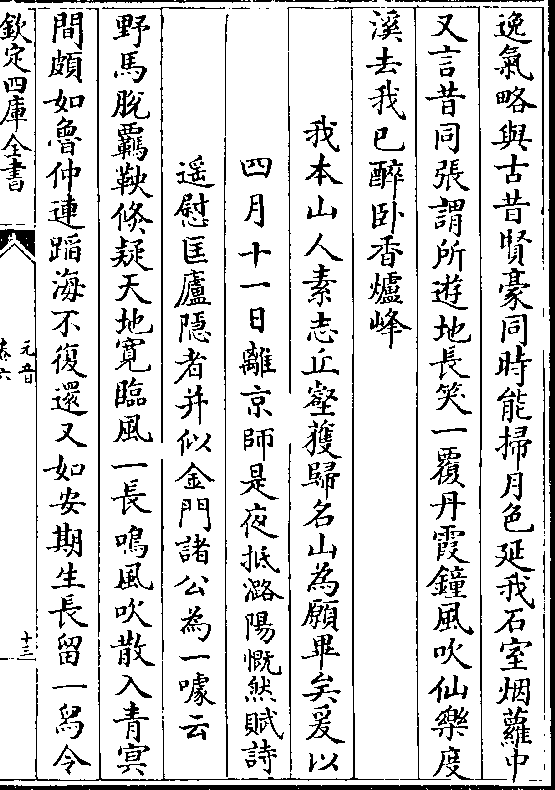 逸氣略與古昔賢豪同時能掃月色延我石室烟蘿中
又言昔同張謂所遊地長笑一覆丹霞鐘風吹仙樂度
溪去我已醉卧香爐峰
我本山人素志丘壑獲歸名山為願畢矣爰以
四月十一日離京師是夜抵潞陽慨然賦詩
遥慰匡廬隱者并似金門諸公為一噱云
野馬脱覊鞅倐疑天地寛臨風一長鳴風吹散入青冥
間頗如魯仲連蹈海不復還又如安期生長留一舄令
欽定四庫全書
元音
卷六
十三